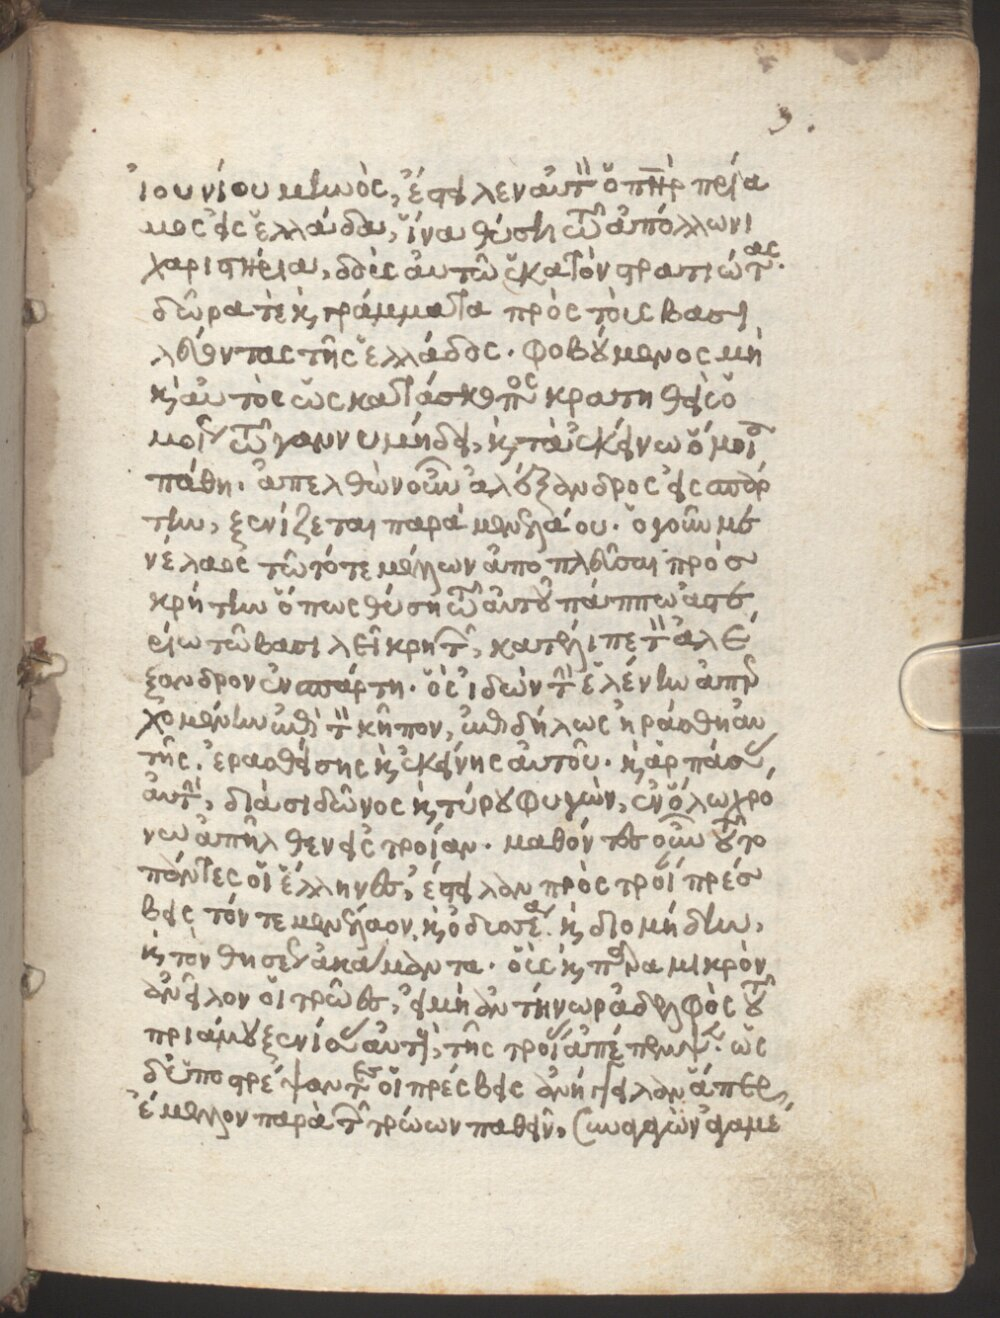 9.
ἰουνίου μηνὸς, ἔστειλεν αὐτὸν ὁ πατὴρ πρία
μος εἰς ἑλλάδα, ἵνα θύσῃ τῷ ἀπόλλωνι
χαριστήρια, δοὺς αὐτῷ ἑκατὸν στρατιώτας.
δῶρά τε καὶ γράμματα πρὸς τοὺς βασι
λεύοντας τῆς ἑλλάδος. φοβούμενος μὴ
καὶ αὐτὸς ὡς κατάσκοπος κρατηθεὶς ὁ
μοίως τῷ γαννυμήδει, καὶ τὰ ἐκείνῳ ὅμοια
πάθῃ. ἀπελθὼν οὖν ἀλέξανδρος εἰς σπάρ
την, ξενίζεται παρὰ μενελάου. ὁ γοῦν με
νέλαος τῷ τότε μέλλων ἀποπλεῦσαι πρὸς
κρήτην ὅπως θύσῃ τῷ αὐτοῦ πάππῳ ἀστε
ρίῳ τῷ βασιλεῖ κρητῶν, καταλείπει τὸν ἀλέ
ξανδρον ἐν σπάρτῃ. ὃς ἰδὼν τὴν ἑλένην ἀπερ
χομένην ἐπὶ τὸν κῆπον, ἐπιδήλως ἠράσθη αὐ
τῆς, ἐρασθείσης καὶ ἐκείνης αὐτοῦ. καὶ ἁρπάσας
αὐτὴν, διὰ σιδῶνος καὶ τύρου φυγὼν, ἐν ὅλῳ χρό
νῳ ἀπῆλθεν εἰς τροίαν. μαθόντες οὖν τοῦτο
πάντες οἱ ἕλληνες, ἔστειλαν πρὸς τροίαν πρέσ
βεις τόν τε μενέλαον, καὶ ὀδυσσέα. καὶ διομήδην,
καὶ τὸν θησέως ἀκάμαντα. οὓς καὶ παρὰ μικρὸν
ἀνεῖλον οἱ τρῶες, εἰ μὴ ἀντήνωρ ἀδελφὸς τοῦ
πριάμου ξενίσας αὐτοὺς, τῆς τροίας ἀπέπεμψεν. ὡς
δ' ὑποστρέψαντες οἱ πρέσβεις ἀνήγγειλαν ἅπερ
ἔμελλον παρὰ τῶν τρώων παθεῖν, συσσωρεύσαμε